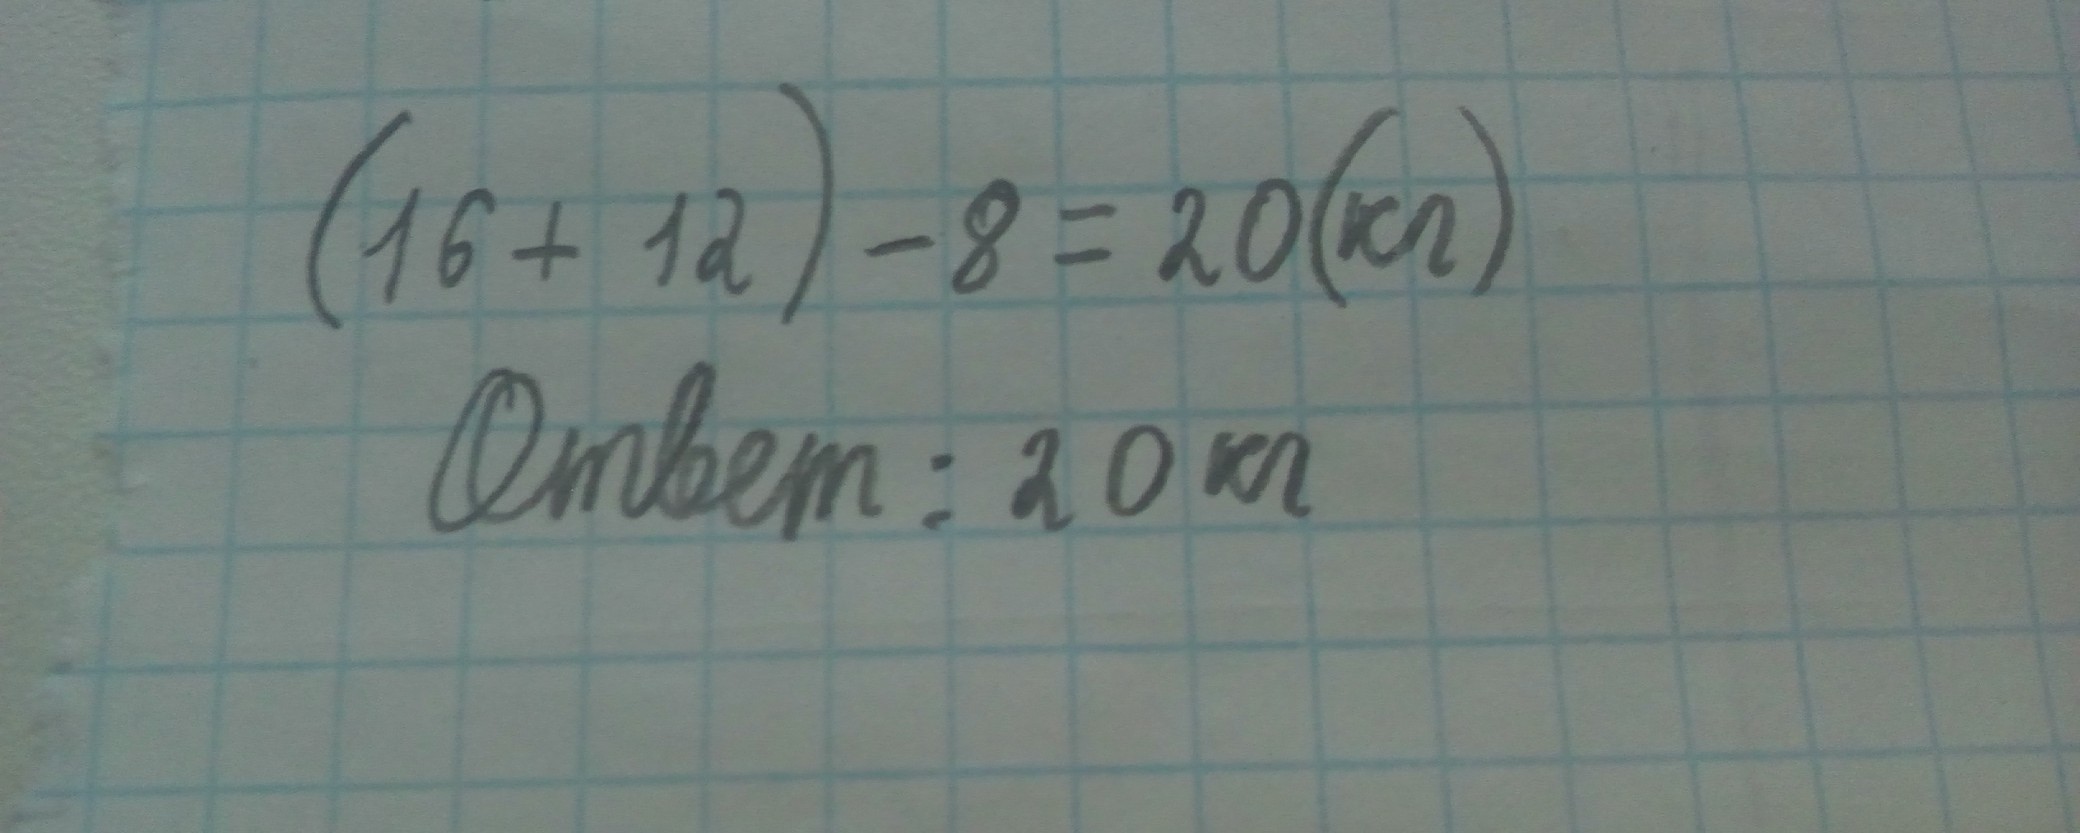 (16 + 12) - 8 = 20 (кг)
Ответ: 20 кг